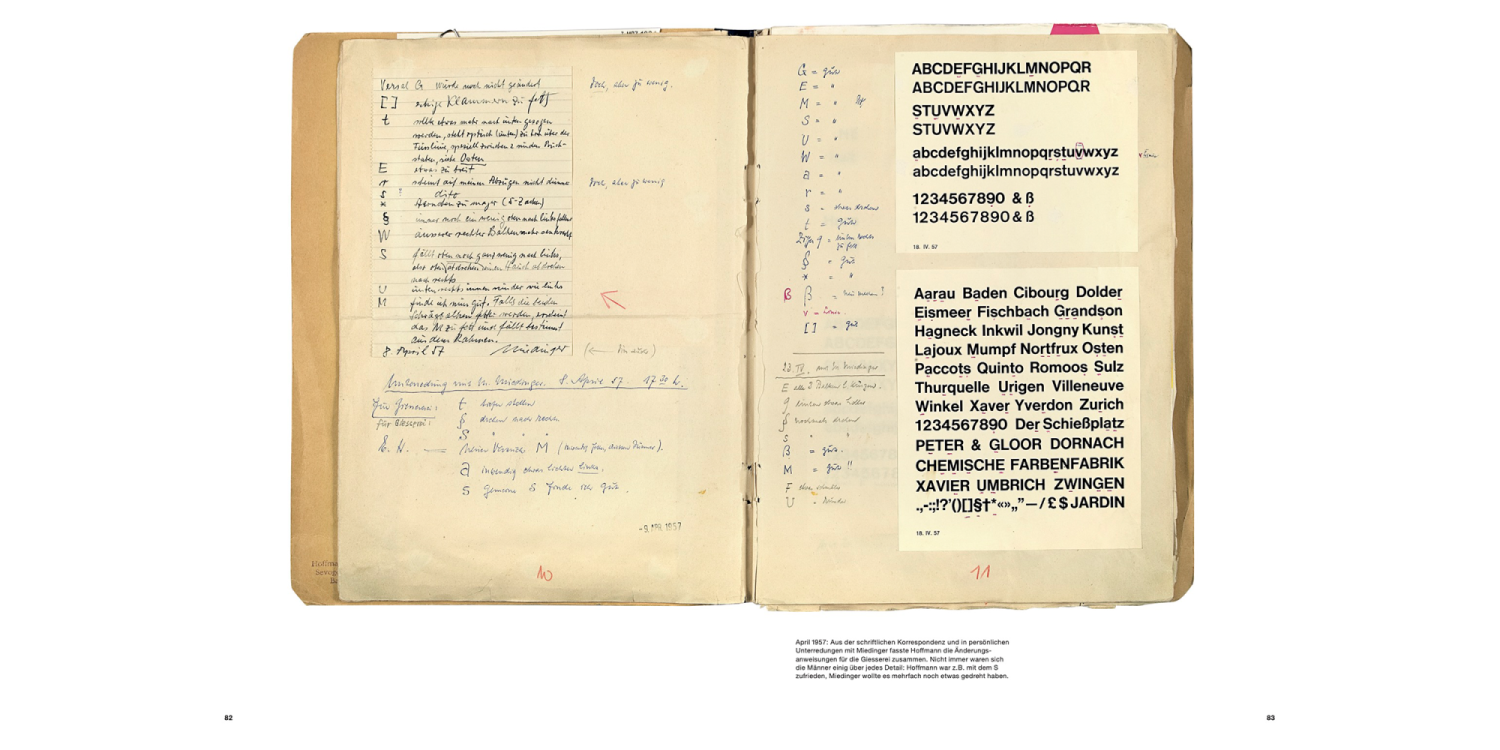 Versal G würde noch nicht geändert
Doch, aber zu wenig.
[ ] eckige Klammern zu fett
t sollte etwas mehr nach unten gezogen
werden, steht optisch (unten) zu hoch über der
Fusslinie, speziell zwischen 2 runden Buch-
staben, siehe Osten
E etwas zu breit
r scheint auf meinen Abzügen nicht dünner
Doch, aber zu wenig
s " dito
* Sternchen zu mager (5-Zacken)
§ immer noch ein wenig oben nach links fallend
W äusserer rechter Balken mehr senkrecht
S fällt oben noch ganz wenig nach links,
nach rechts
U unten rechts innen runder wie links
M finde ich nun gut. Falls die beiden
Schrägbalken fetter werden, wird
das M zu fett und fällt bestimmt
aus dem Rahmen.
8. April 57 Miedinger
Unterredung mit H. Miedinger. 8. April 57. 17 h.
Für Graveur:
für Giesserei:
t tiefer stellen
§ drehen nach rechts
S " " "
E. H. — M
a inwendig etwas leichter links.
s gemeine s finde ich gut.
-9. APR. 1957
10
G = gut
E = "
M = "
S = "
U = "
W = "
a = "
r = "
s = etwas drehen
t = gut
§ = gut
* = "
ß ß =
v =
[ ] = gut
23. IV. mit H. Miedinger
E
g unten etwas heller
§ nochmals drehen
S " "
ß = gut.
M = gut!!
F etwas schmaler
U = runder
ABCDEFGHIJKLMNOPQR
ABCDEFGHIJKLMNOPQR
STUVWXYZ
STUVWXYZ
abcdefghijklmnopqrstuvwxyz
abcdefghijklmnopqrstuvwxyz
1234567890 & ß
1234567890 & ß
18. IV. 57
Aarau Baden Cibourg Dolder
Eismeer Fischbach Grandson
Hagneck Inkwil Jongny Kunst
Lajoux Mumpf Nortfrux Osten
Paccots Quinto Romoos Sulz
Thurquelle Urigen Villeneuve
Winkel Xaver Yverdon Zurich
1234567890 Der Schießplatz
PETER & GLOOR DORNACH
CHEMISCHE FARBENFABRIK
XAVIER UMBRICH ZWINGEN
.,-:;!?'()[]§†*«»„”—/£$JARDIN
18. IV. 57
11
April 1957: Aus der schriftlichen Korrespondenz und in persönlichen
Unterredungen mit Miedinger fasste Hoffmann die Änderungs-
anweisungen für die Giesserei zusammen. Nicht immer waren sich
die Männer einig über jedes Detail: Hoffmann war z.B. mit dem S
zufrieden, Miedinger wollte es mehrfach noch etwas gedreht haben.
82
83